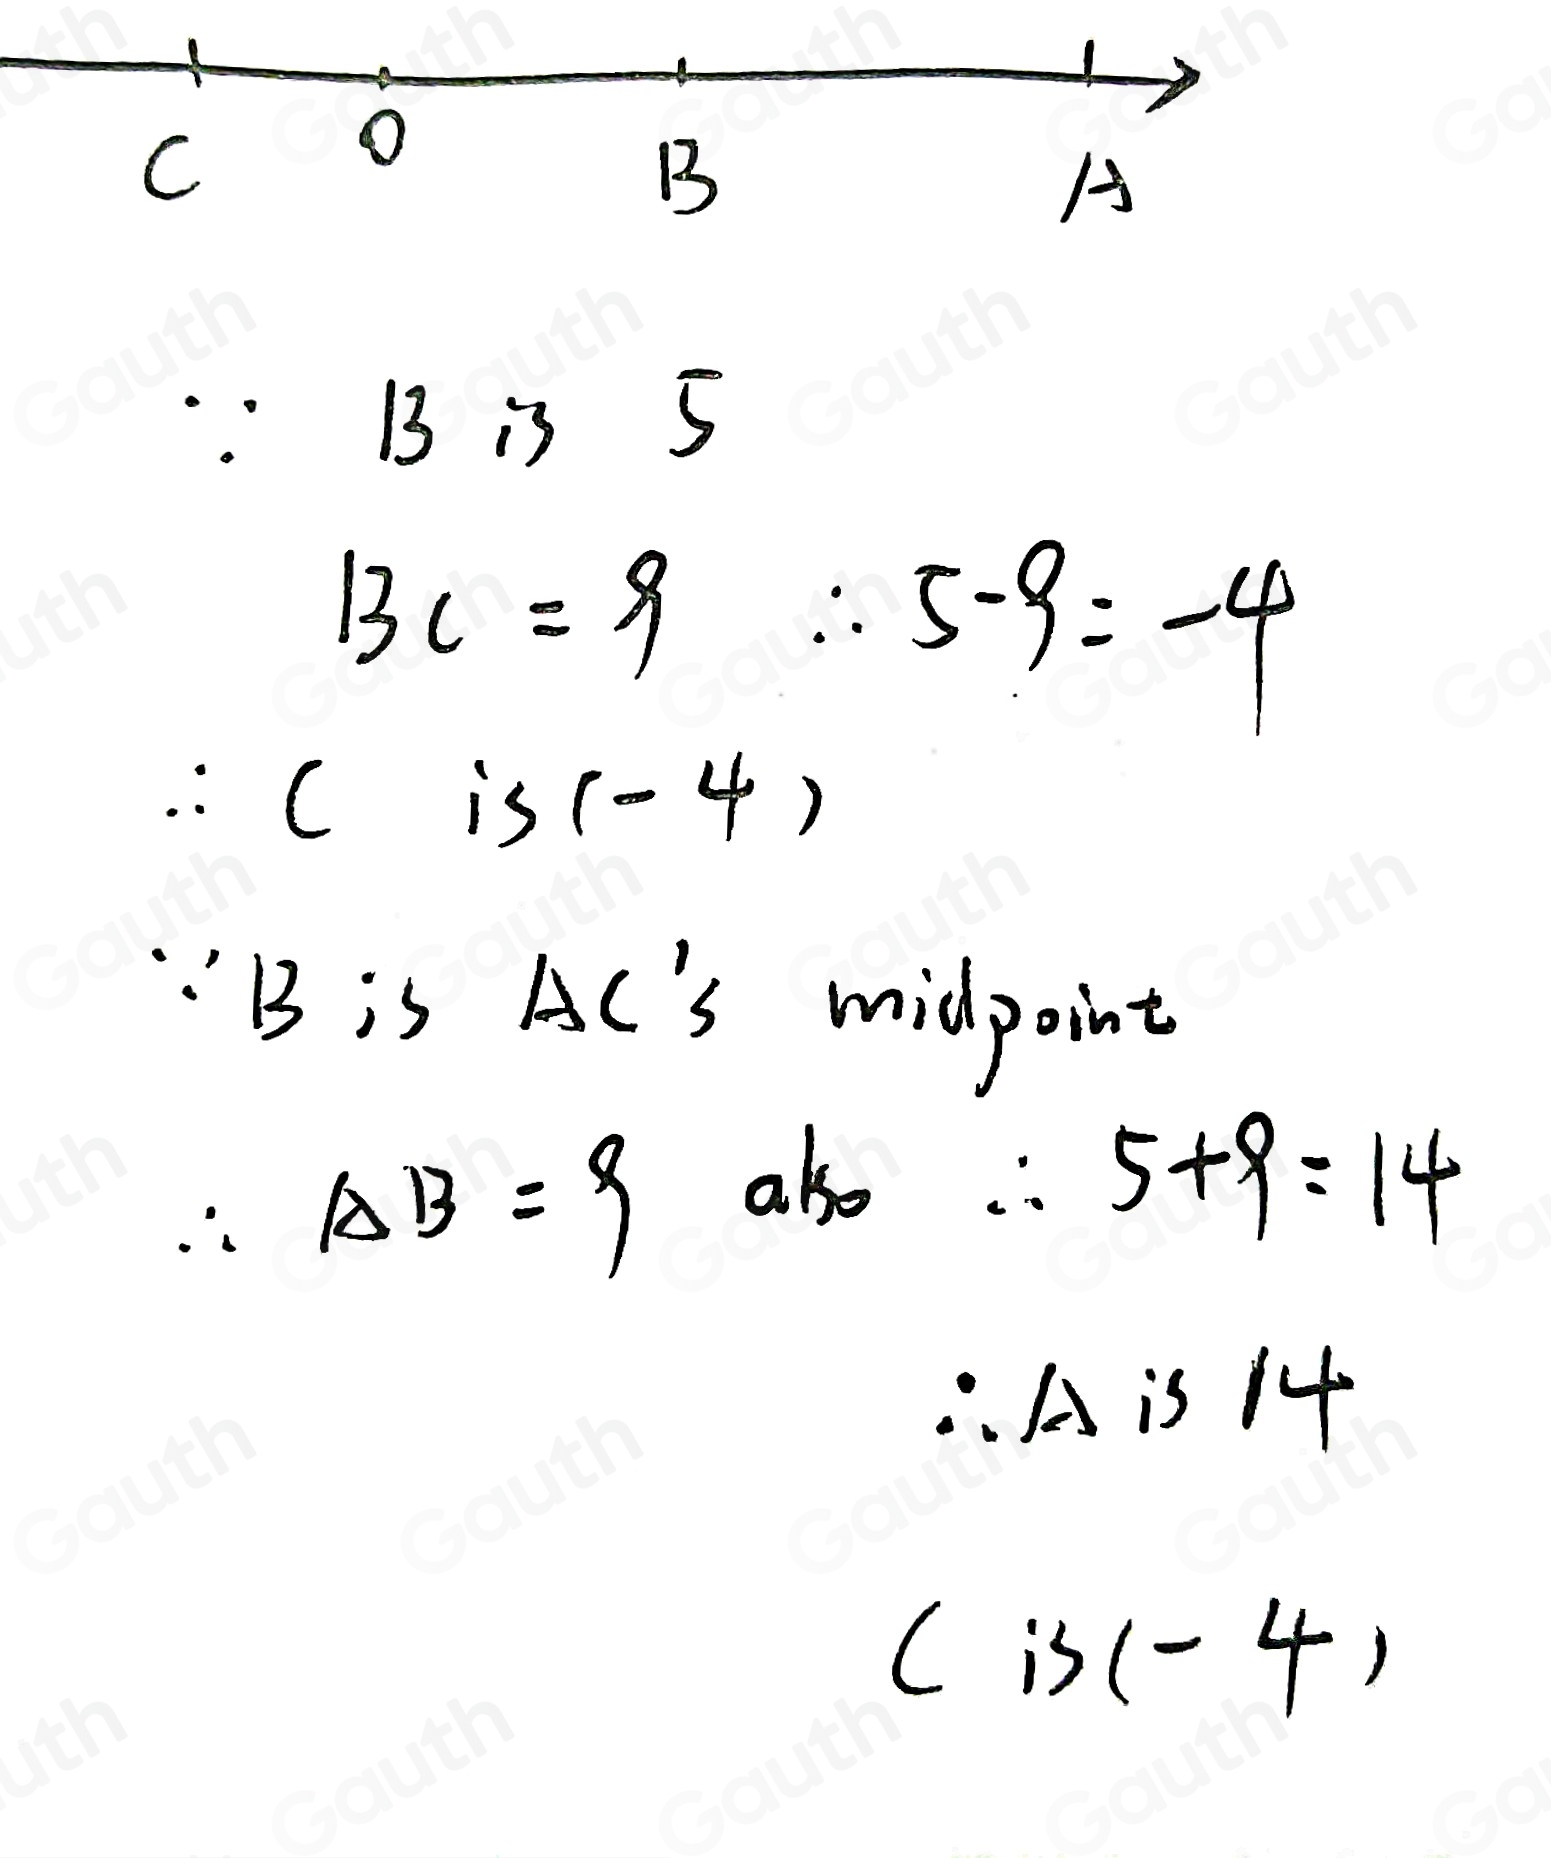 C O B A
∵ B is 5
BC = 9 ∴ 5-9=-4
∴ C is (-4)
∵ B is AC's midpoint
∴ AB = 9 also ∴ 5+9=14
∴ A is 14
C is (-4)